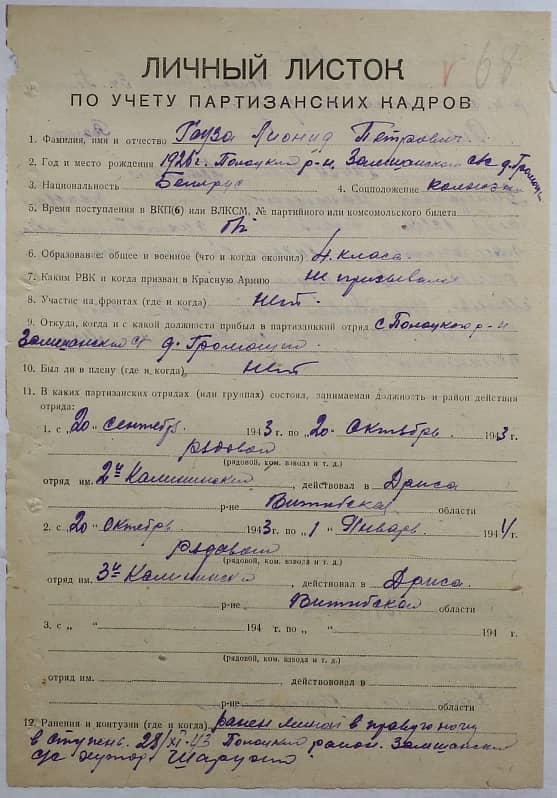 68
ЛИЧНЫЙ ЛИСТОК
ПО УЧЕТУ ПАРТИЗАНСКИХ КАДРОВ
1. Фамилия, имя и отчество Гауза Лионид Петрович
2. Год и место рождения 1926 г. Полоцкий р-н, Замшанского с/с д. Громощи
3. Национальность Беларус 4. Соцположение колхозн
5. Время поступления в ВКП(б) или ВЛКСМ, № партийного или комсомольского билета
б/п
6. Образование: общее и военное (что и когда окончил) 4 класа
7. Каким РВК и когда призван в Красную Армию не призывался
8. Участие на фронтах (где и когда) нет
9. Откуда, когда и с какой должности прибыл в партизанский отряд с Полоцкого р-н
Замшанский с/с д. Громощи
10. Был ли в плену (где и когда) нет
11. В каких партизанских отрядах (или группах) состоял, занимаемая должность и район действия
отряда:
1. с „20" сентябр 1943 г. по „20" Октябрь 1943 г.
рядовой
(рядовой, ком. взвода и т. д.)
отряд им. 2й Калининский, действовал в Дриса
р-не Витибская области
2. с „20" Октябрь 1943 г. по „1" Январь 1944 г.
рядавой
(рядовой, ком. взвода и т. д.)
отряд им. 3й Калининский, действовал в Дриса
р-не Витибской области
3. с „ " 194 г. по „ " 194 г.
(рядовой, ком. взвода и т. д.)
отряд им. , действовал в
р-не области
12. Ранения и контузии (где и когда) ранен миной в правую ногу
в ступень. 28/XI-43 Полоцкий район. Замшанский
с/с хутор